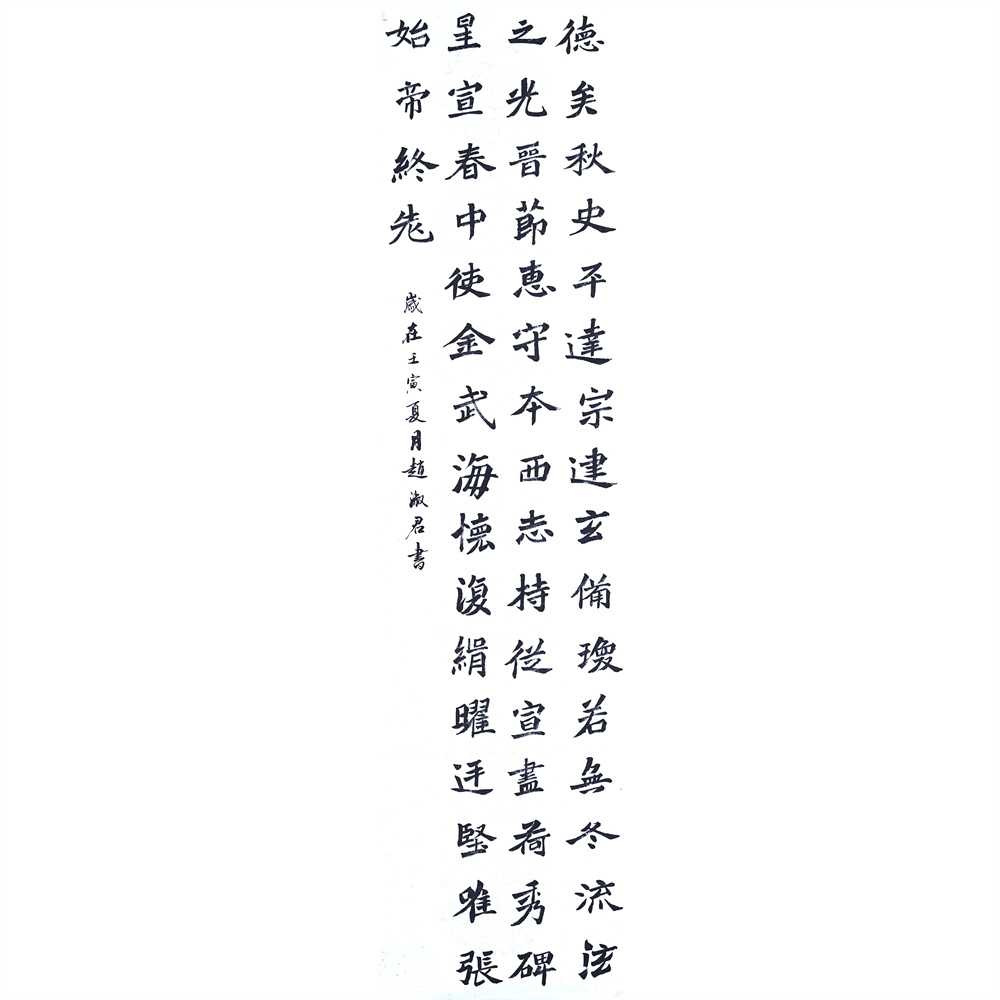 德矣秋史平達宗建玄備瓊若無冬流泫
之光晉節惠守本西志持從宣盡荷秀碑
星宣春中使金武海懷復絹曜迋堅唯張
始帝終旄
歲在壬寅夏月趙淑君書